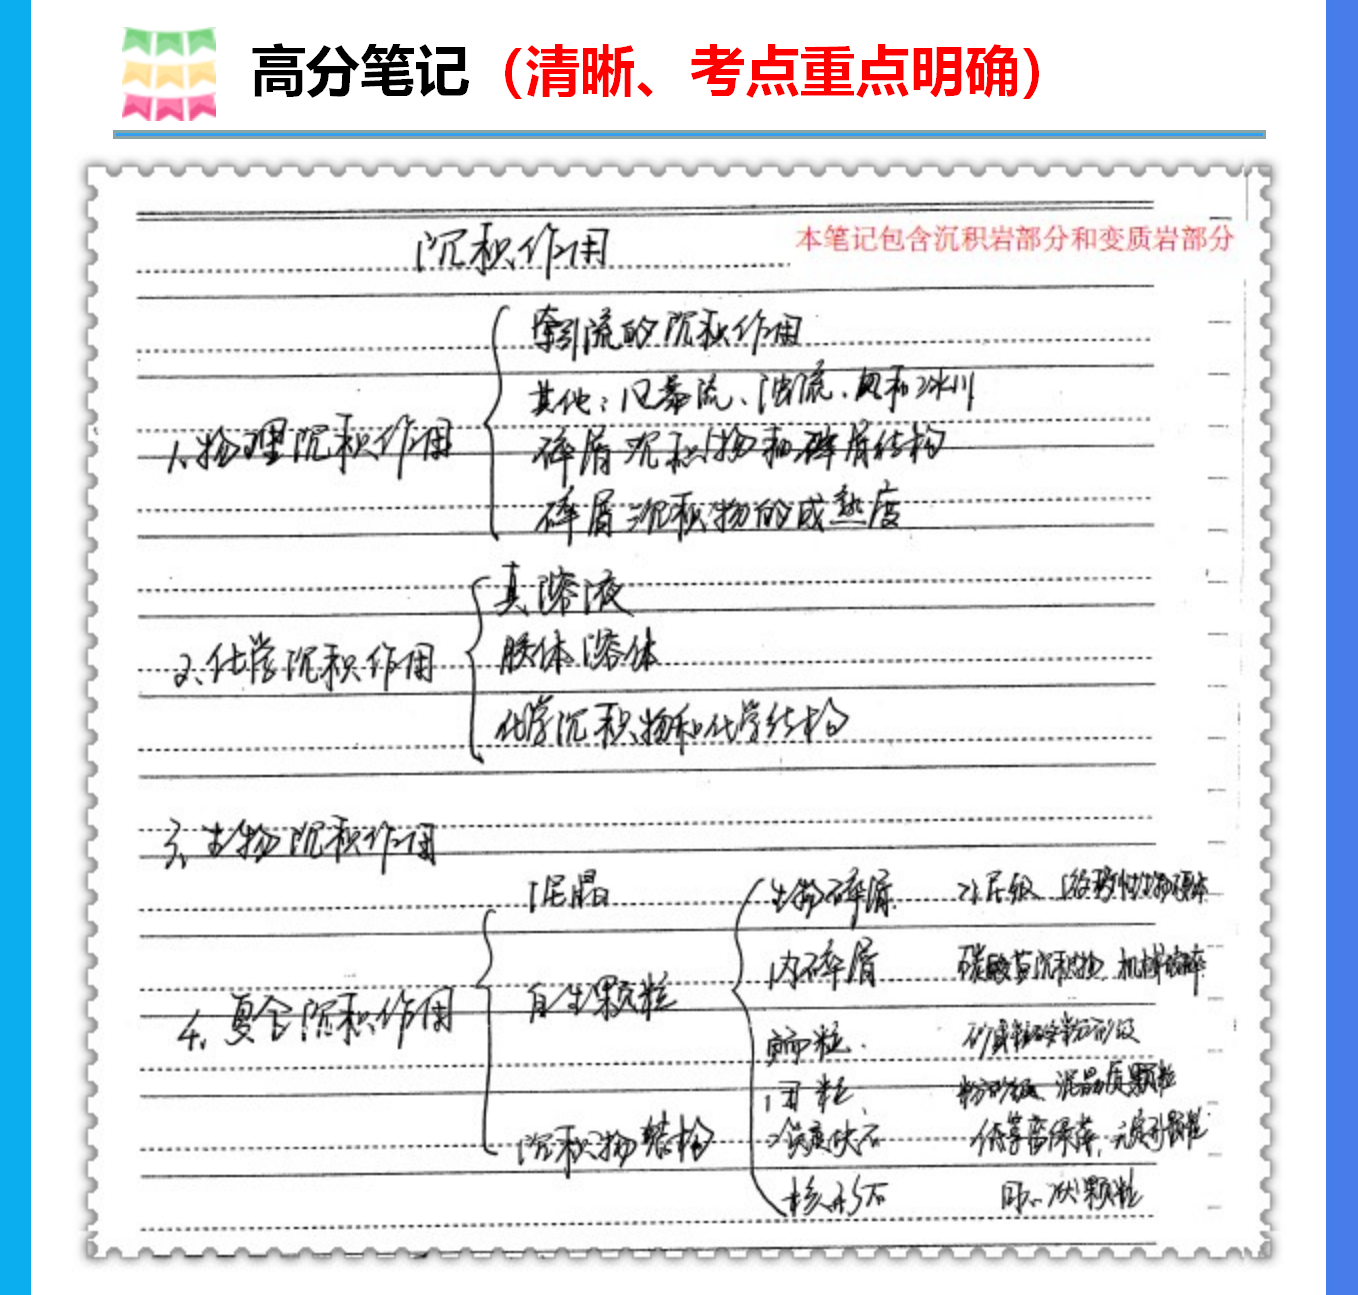 高分笔记（清晰、考点重点明确）
沉积作用
本笔记包含沉积岩部分和变质岩部分
牵引流的沉积作用
其他：风暴流、浊流、风和冰川
1、物理沉积作用
碎屑沉积物和碎屑结构
碎屑沉积物的成熟度
真溶液
2、化学沉积作用
胶体溶体
化学沉积物和化学结构
3、生物沉积作用
泥晶
生物碎屑
内碎屑
碳酸盐沉积物、机械破碎
自生颗粒
4、复合沉积作用
鲕粒
团粒
粉砂级、泥晶质颗粒
沉积物结构
核形石
同心状颗粒